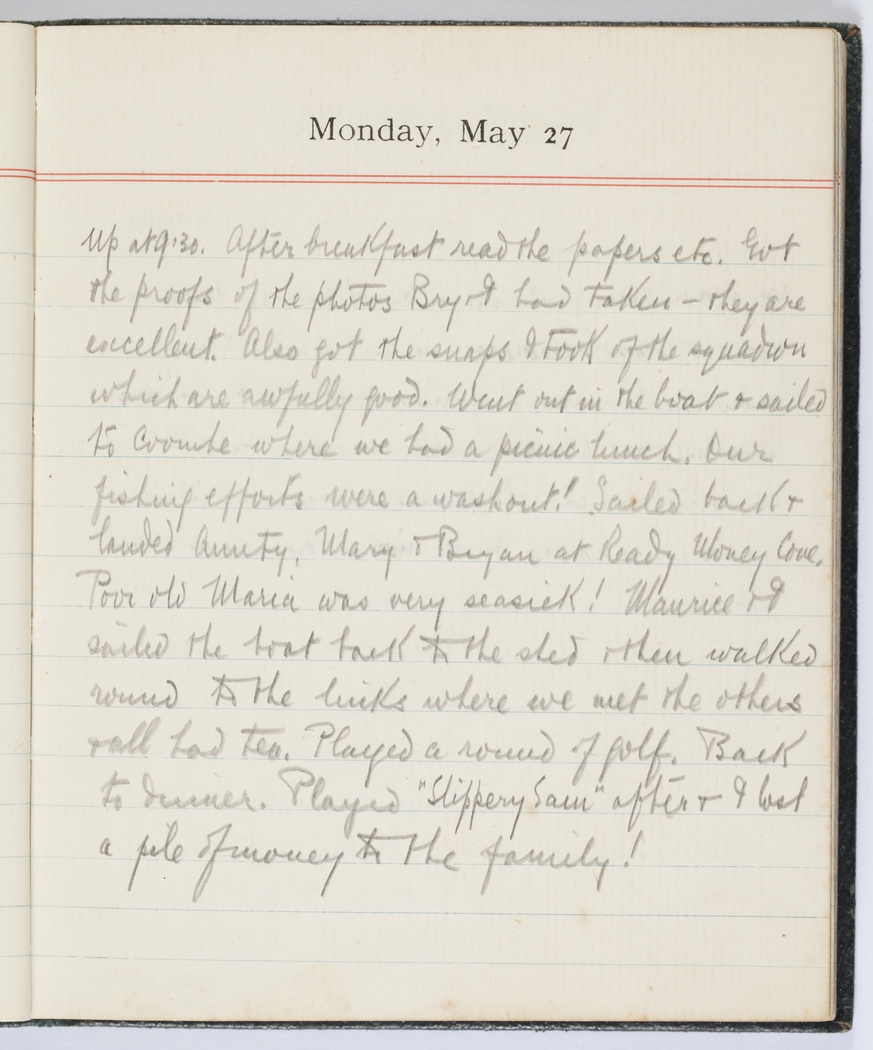 Monday, May 27
Up at 9.30. After breakfast read the papers etc. Got
the proofs of the photos Bry & I had taken – they are
excellent. Also got the snaps I took of the squadron
which are awfully good. Went out in the boat & sailed
to Coombe where we had a picnic lunch. Our
fishing efforts were a washout! Sailed back &
landed Aunty, Mary & Bryan at Ready Money Cove.
Poor old Maria was very seasick! Maurice & I
sailed the boat back to the shed & then walked
round to the links where we met the others
& all had tea. Played a round of golf. Back
to dinner. Played "Slippery Sam" after & I lost
a pile of money to the family!